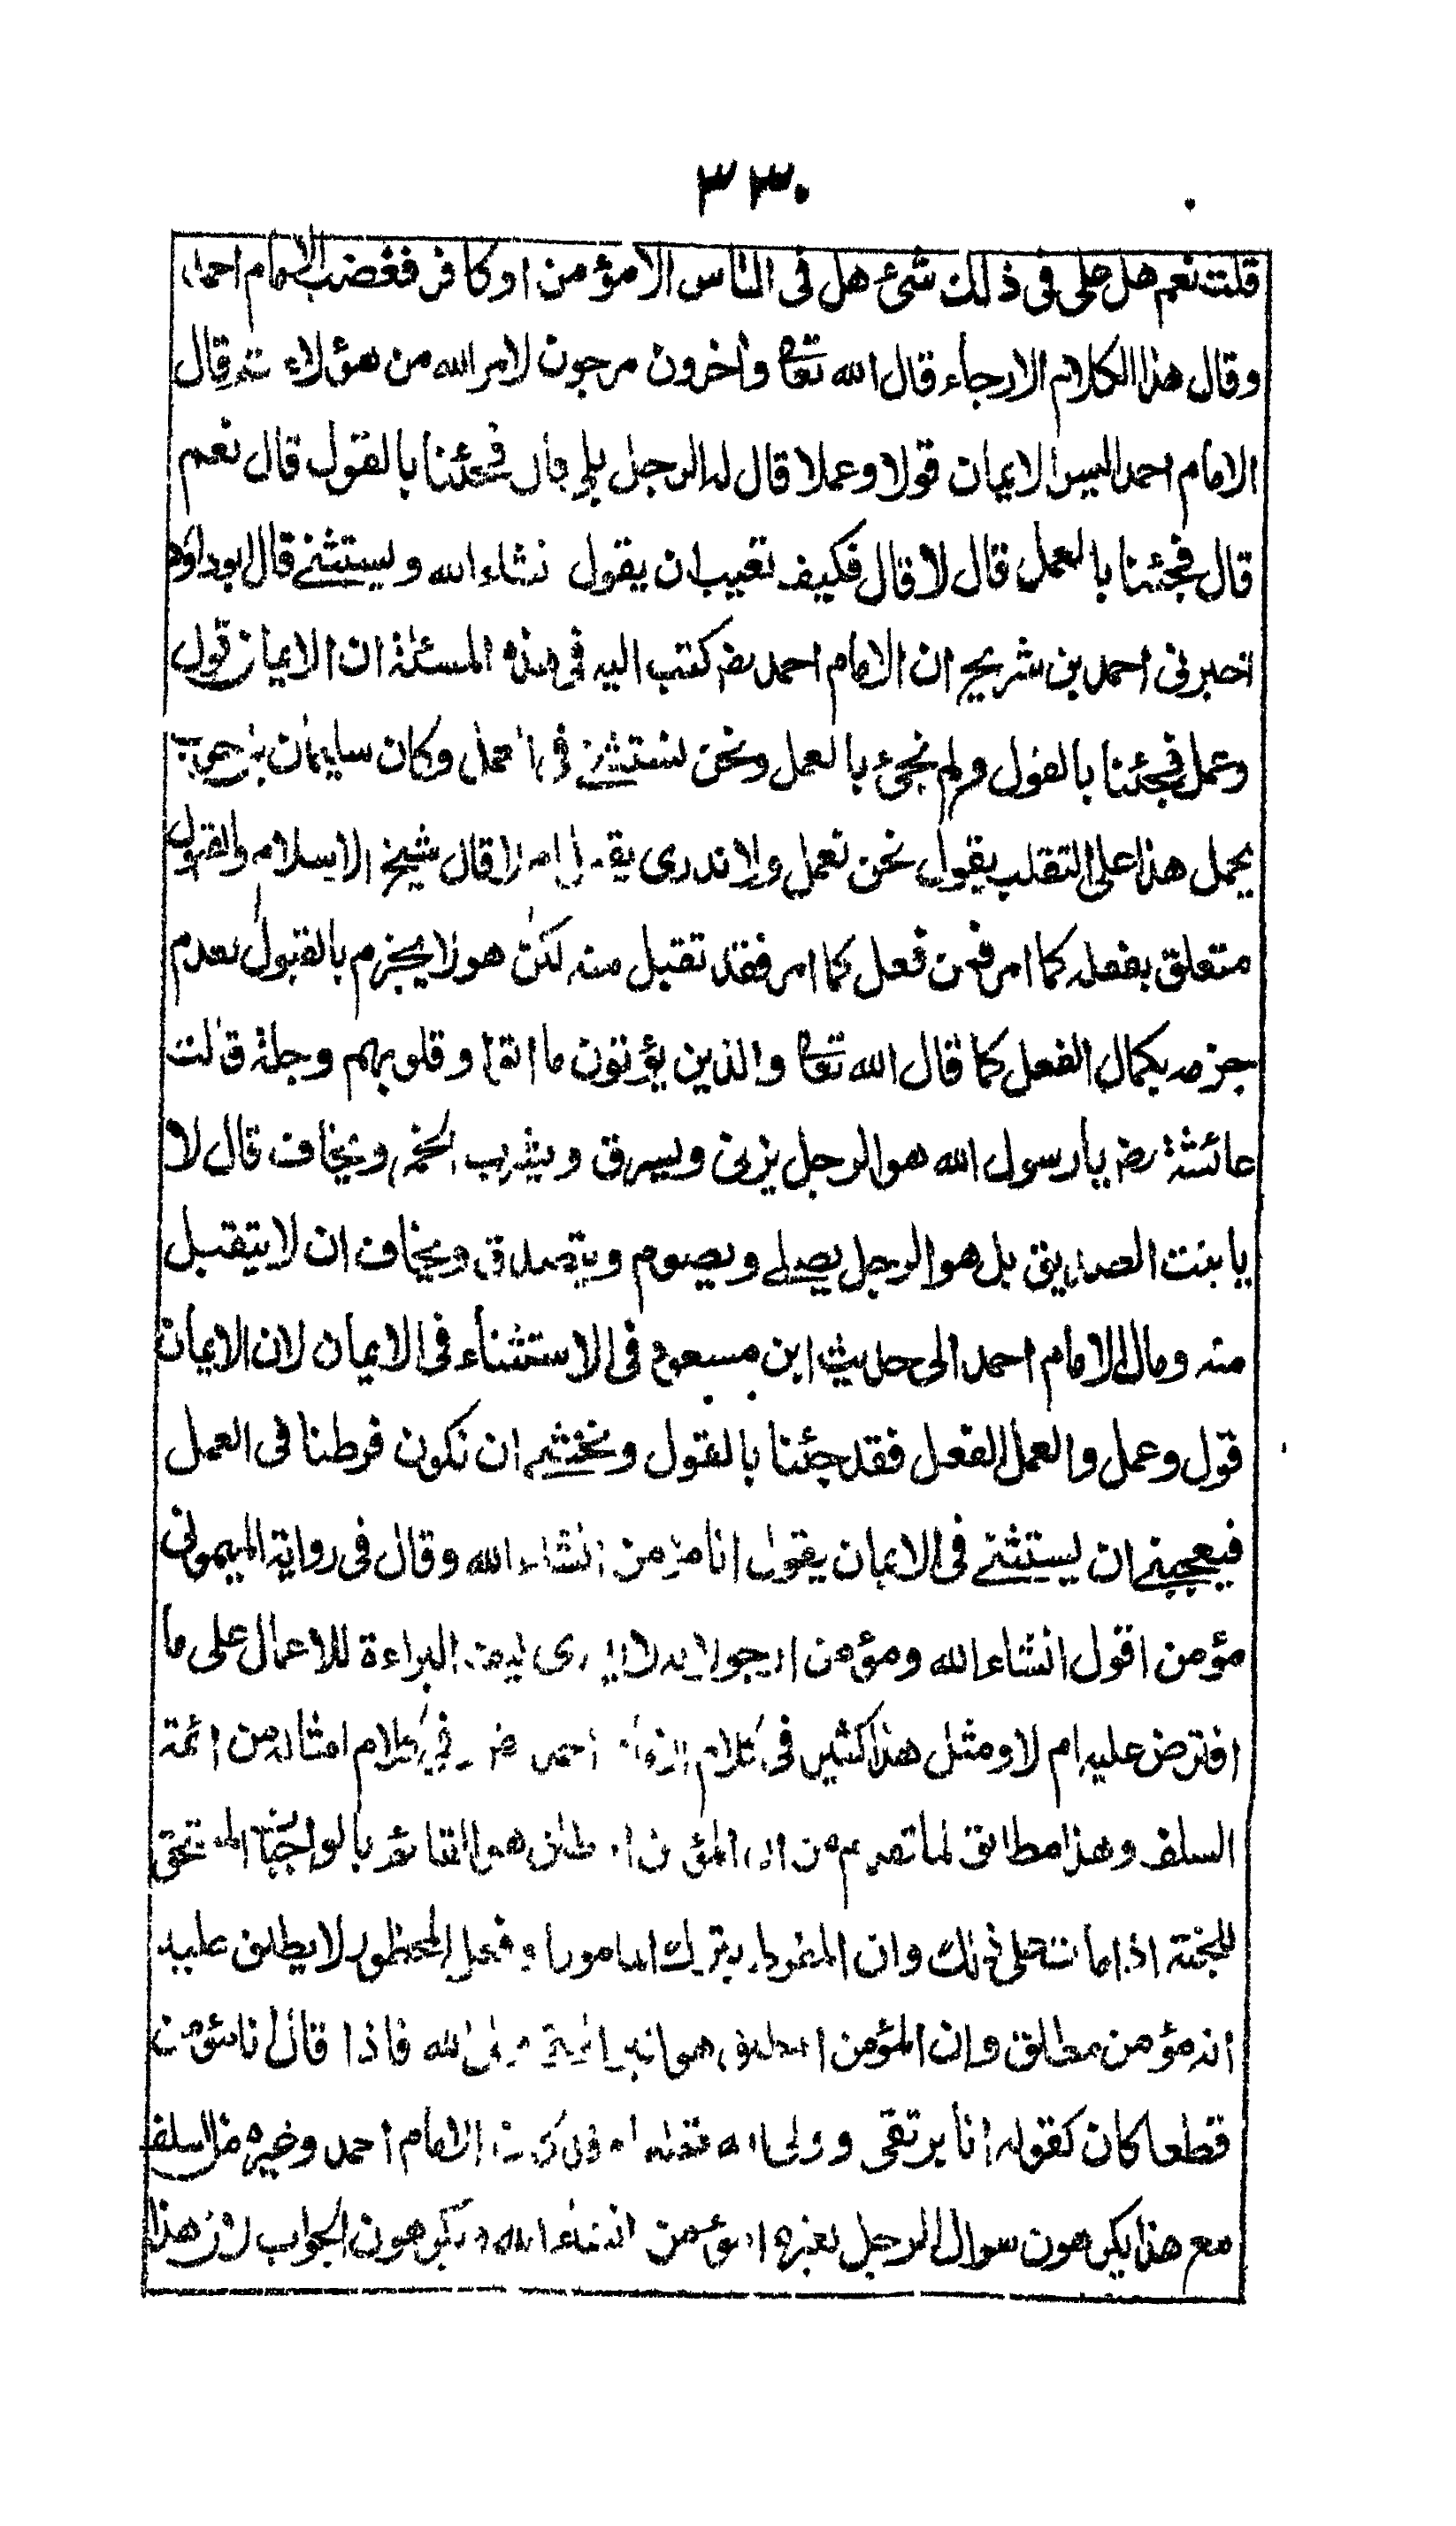 ٣٣٠
قلت نعم هل على فى ذلك شئ هل فى الناس الا مؤمن او كافر فغضب الامام احمد
وقال هذا الكلام الارجاء قال الله تعا وآخرون مرجون لامر الله من هؤلاء ثم قال
الامام احمد اليس الايمان قولا وعملا قال له الرجل بلى قال فجئنا بالقول قال نعم
قال فجئنا بالعمل قال لا قال فكيف تعيب ان يقول نشاء الله ويستثنے قال ابوداود
اخبرنى احمد بن شريح ان الامام احمد رضہ كتب اليه فى هذه المسئلة ان الايمان قول
وعمل فجئنا بالقول ولم نجئ بالعمل ونحن نستثنے فى العمل وكان سليمان بن حرب
يحمل هذا على التقلب يقول نحن نعمل ولا ندرى يقبل ام لا قال شيخ الاسلام والقبول
متعلق بفعله كما امر فمن فعل كما امر فقد تقبل منه لكن هو لا يجزم بالقبول لعدم
جزمه بكمال الفعل كما قال الله تعا والذين يؤتون ما اتوا وقلوبهم وجلة قالت
عائشة رضہ يا رسول الله هو الرجل يزنى ويسرق ويشرب الخمر ويخاف قال لا
يا بنت الصديق بل هو الرجل يصلے ويصوم ويتصدق ويخاف ان لا يتقبل
منه ومال الامام احمد الى حديث ابن مسعود فى الاستثناء فى الايمان لان الايمان
قول وعمل والعمل الفعل فقد جئنا بالقول ونخشے ان نكون فرطنا فى العمل
فيعجبنے ان يستثنے فى الايمان يقول انا مؤمن انشاء الله وقال فى رواية الميمونى
مؤمن اقول انشاء الله ومؤمن ارجو لانه لا يدرى كيف البراءة للاعمال على ما
افترض عليه ام لا ومثل هذا كثير فى كلام احمد رضہ وفى كلام امثاله من ائمة
السلف وهذا مطابق لما تقدم من ان المؤمن المطلق هو القائم بالواجبات المستحق
للجنة اذا مات على ذلك وان المفرط بترك المامور او فعل المحظور لا يطلق عليه
انه مؤمن مطلق وان المؤمن المطلق هو البر التقى ولى الله فاذا قال انا مؤمن
قطعا كان كقوله انا بر تقى وولى الله قطعا وقد كان الامام احمد وغيره من السلف
مع هذا يكرهون سوال الرجل لغيره امؤمن انت ويكرهون الجواب لان هذا